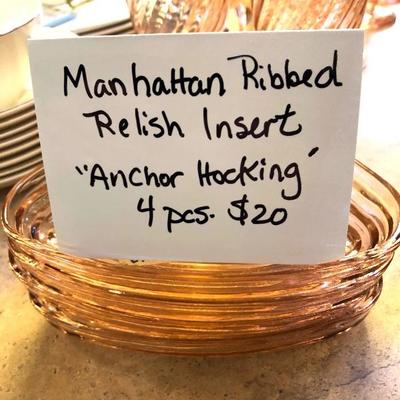 Manhattan Ribbed
Relish Insert
"Anchor Hocking"
4 pcs. $20